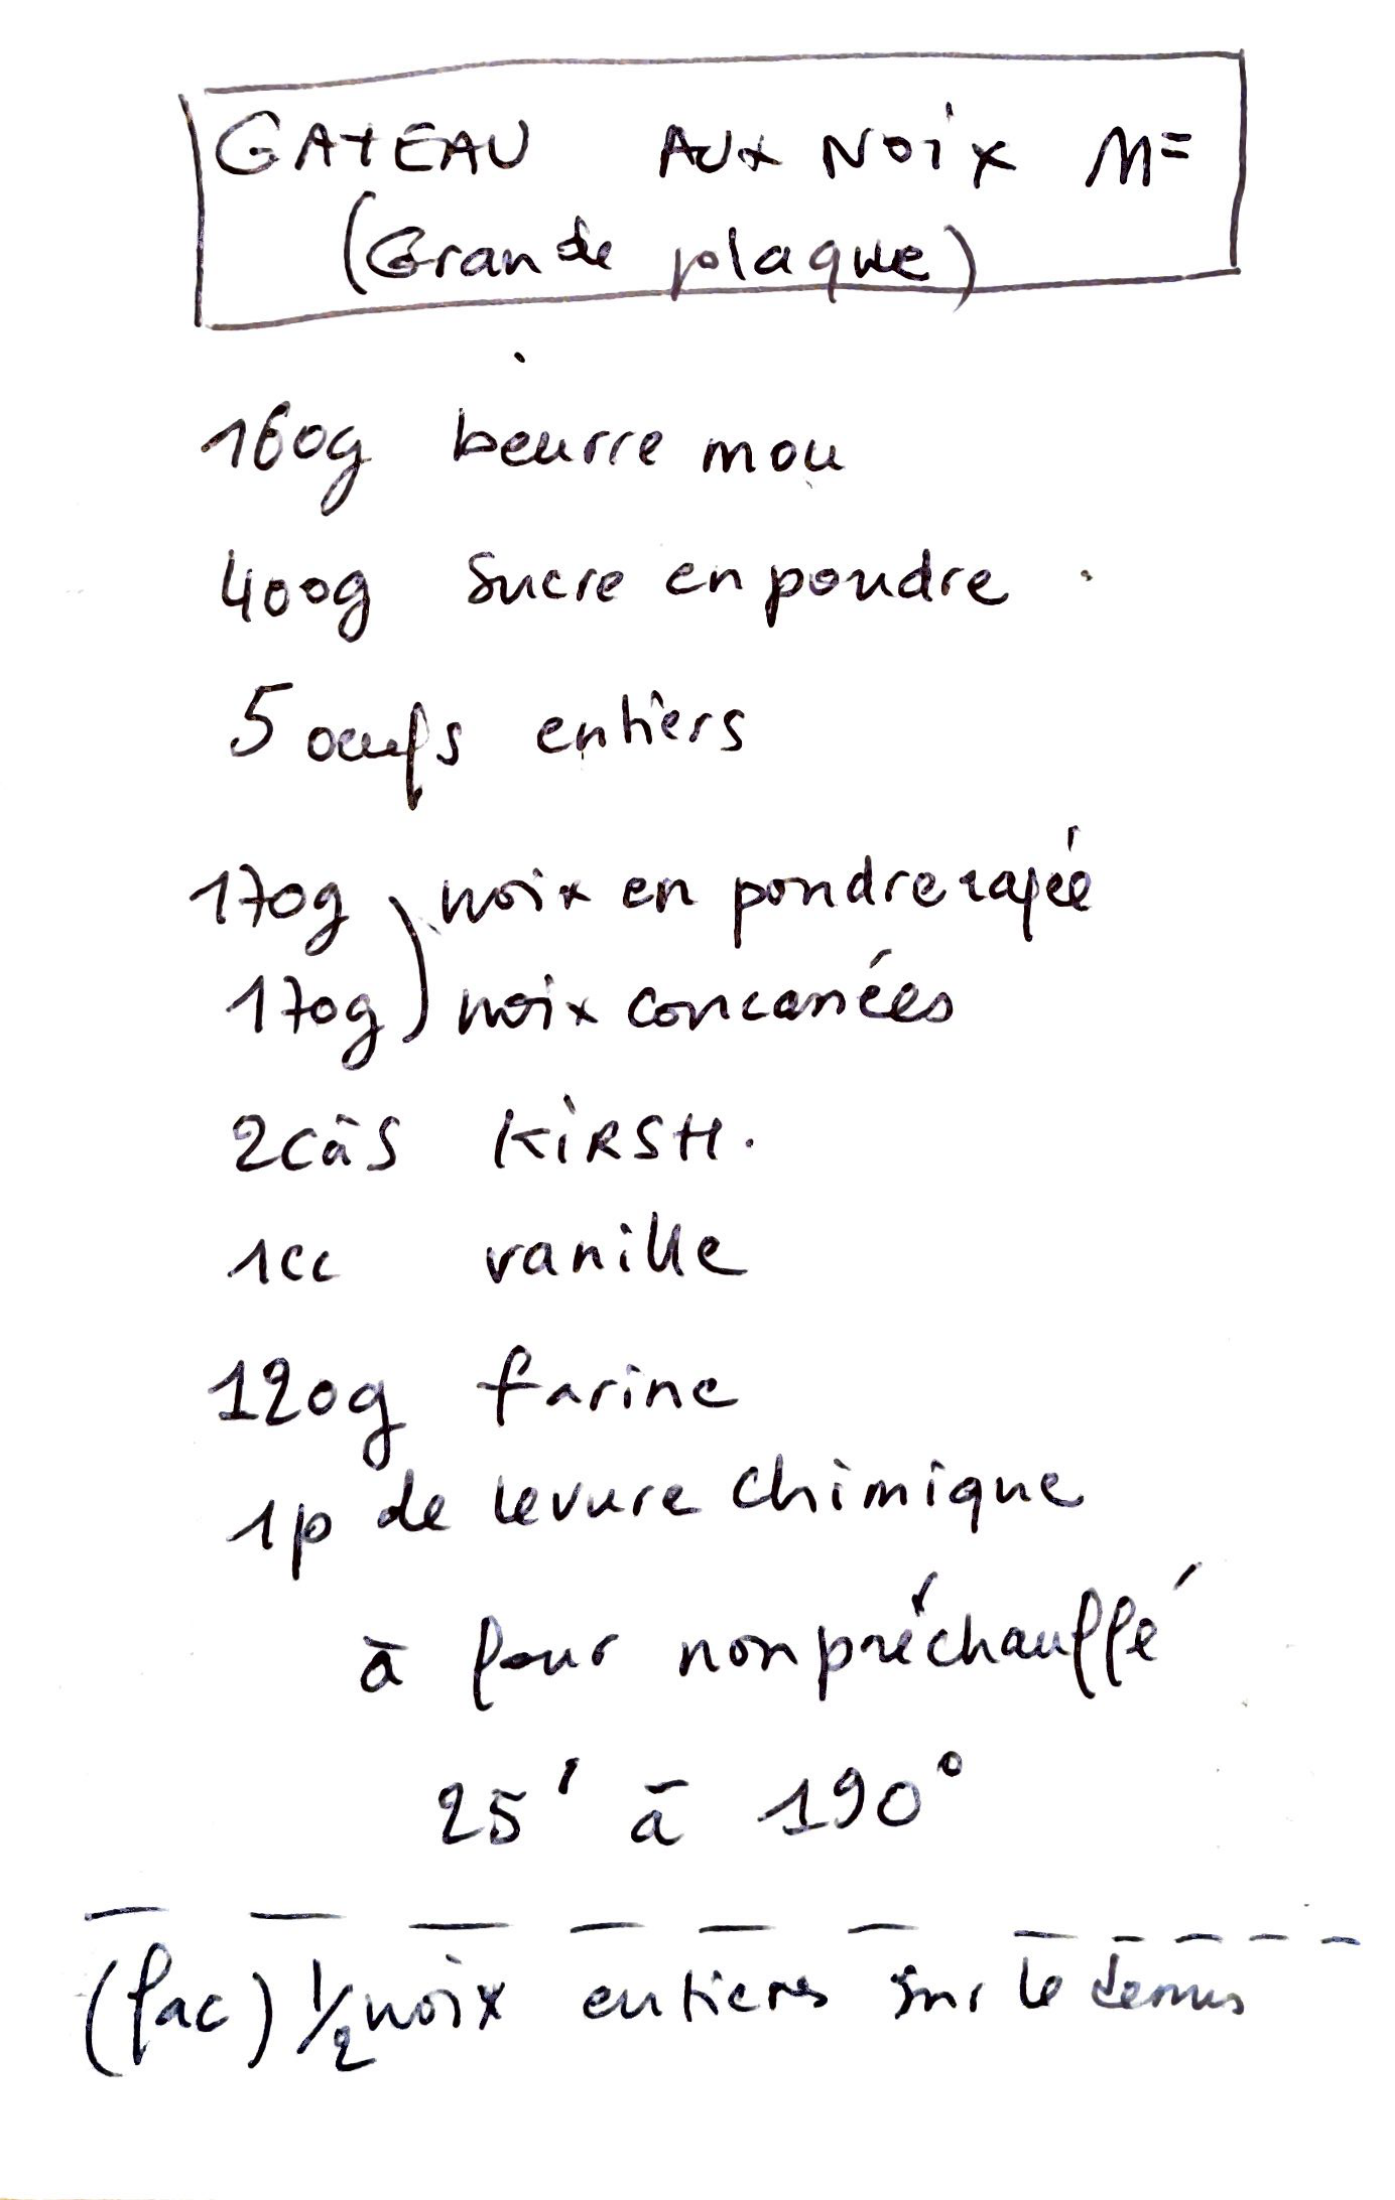 GATEAU AUX NOIX MF
(Grande plaque)
160g beurre mou
400g Sucre en poudre
5 œufs entiers
170g noix en poudre rapée
170g noix concassées
2càs KIRSH.
1cc vanille
120g farine
1p de levure chimique
à four non préchauffé
25' à 190°
(fac) 1/2 noix entieres sur le dessus